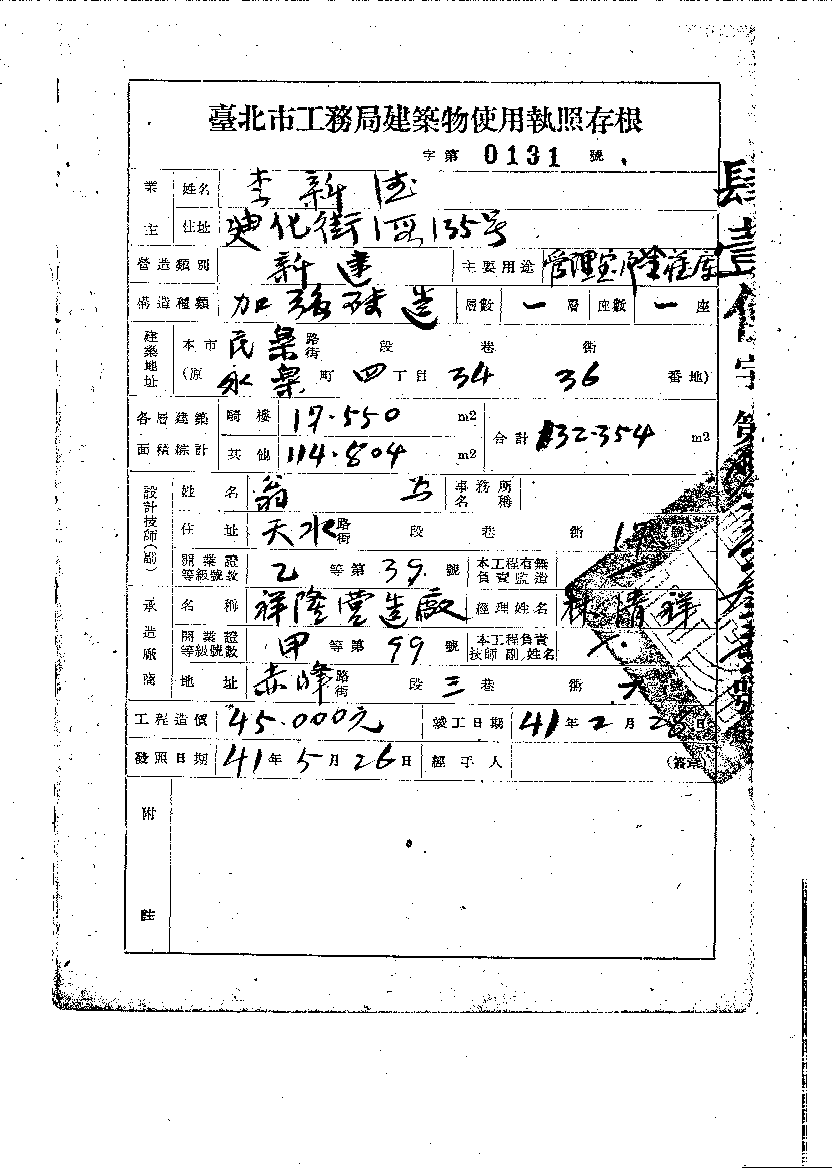 臺北市工務局建築物使用執照存根
字第 0131 號
業主 姓名 李新德
住址 迪化街1段135号
營造類別 新建 主要用途
構造種類 加強磚造 層數 一層 座數 一座
建築地址 本市民樂路街 段 巷 衖
(原永樂町四丁目34 36 番地)
各層建築面積綜計 騎樓 17.550 m2 合計 132.354 m2
其他 114.804 m2
設計技師(副) 姓名 翁 事務所名稱
住址 天水路街 段 巷 衖 17
開業證等級號数 乙等第39號 本工程有無負責監造
承造廠商 名稱 祥隆營造廠 經理姓名 林清祥
開業證等級號數 甲等第99號 本工程負責技師副姓名
地址 赤峰路街 段 三巷 衖 六
工程造價 45.000元 竣工日期 41年2月28日
發照日期 41年5月26日 經手人 (簽章)
附註